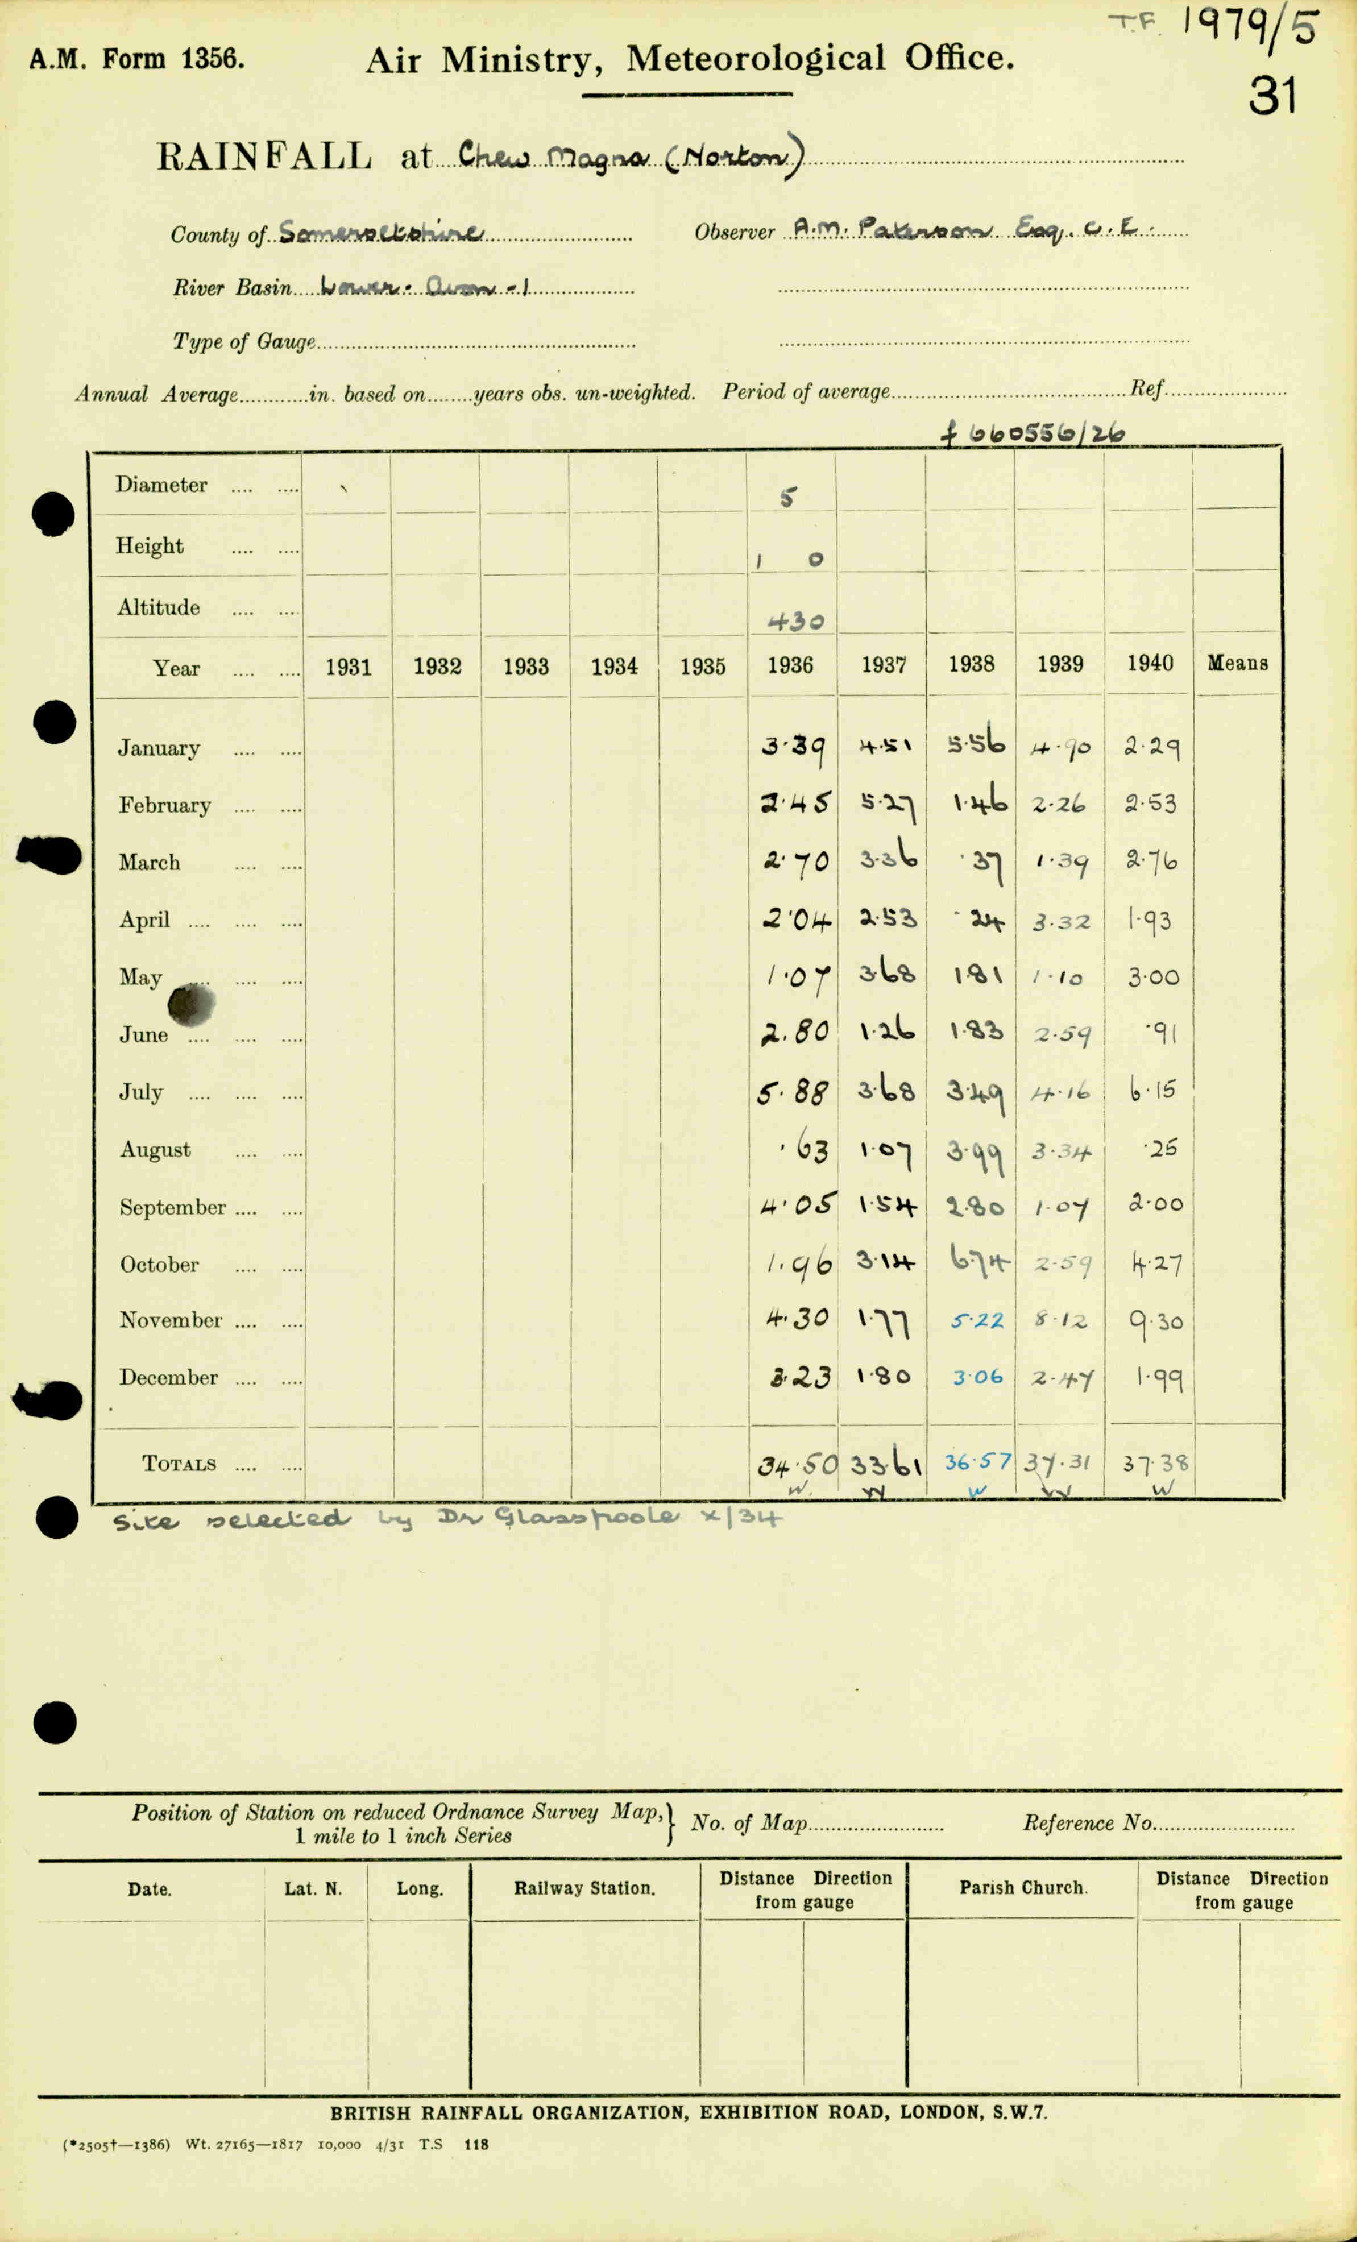 T.F. 1979/5
A.M. Form 1356. Air Ministry, Meteorological Office.
31
RAINFALL at Chew Magna (Norton)
County of Somersetshire Observer A.M. Paterson Esq. C.E.
River Basin Lower Avon - 1
Type of Gauge
Annual Average in. based on years obs. un-weighted. Period of average Ref.
f 660556/26
Diameter 5
Height 1 0
Altitude 430
Year 1931 1932 1933 1934 1935 1936 1937 1938 1939 1940 Means
January 3.39 4.51 5.56 4.90 2.29
February 2.45 5.27 1.46 2.26 2.53
March 2.70 3.36 .37 1.39 2.76
April 2.04 2.53 .24 3.32 1.93
May 1.07 3.68 1.81 1.10 3.00
June 2.80 1.26 1.83 2.59 .91
July 5.88 3.68 3.49 4.16 6.15
August .63 1.07 3.99 3.34 .25
September 4.05 1.54 2.80 1.07 2.00
October 1.96 3.14 6.74 2.59 4.27
November 4.30 1.77 5.22 8.12 9.30
December 3.23 1.80 3.06 2.47 1.99
TOTALS 34.50 33.61 36.57 37.31 37.38
W W W W W
Site selected by Dr Glasspoole x/34
Position of Station on reduced Ordnance Survey Map, } No. of Map Reference No.
1 mile to 1 inch Series
Date. Lat. N. Long. Railway Station. Distance Direction from gauge Parish Church. Distance Direction from gauge
BRITISH RAINFALL ORGANIZATION, EXHIBITION ROAD, LONDON, S.W.7.
(*2505†—1386) Wt. 27165—1817 10,000 4/31 T.S 118